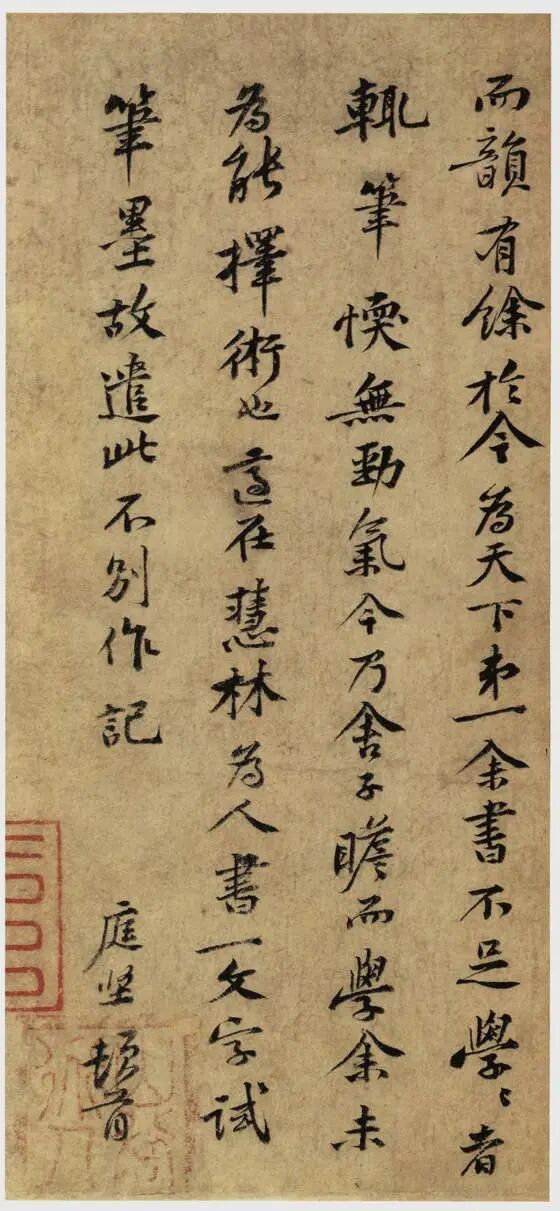 而韻有餘於今為天下第一余書不足學學者
輒筆愞無勁氣今乃舍子瞻而學余未
為能擇術也適在慧林為人書一文字試
筆墨故遣此不別作記
庭坚頓首